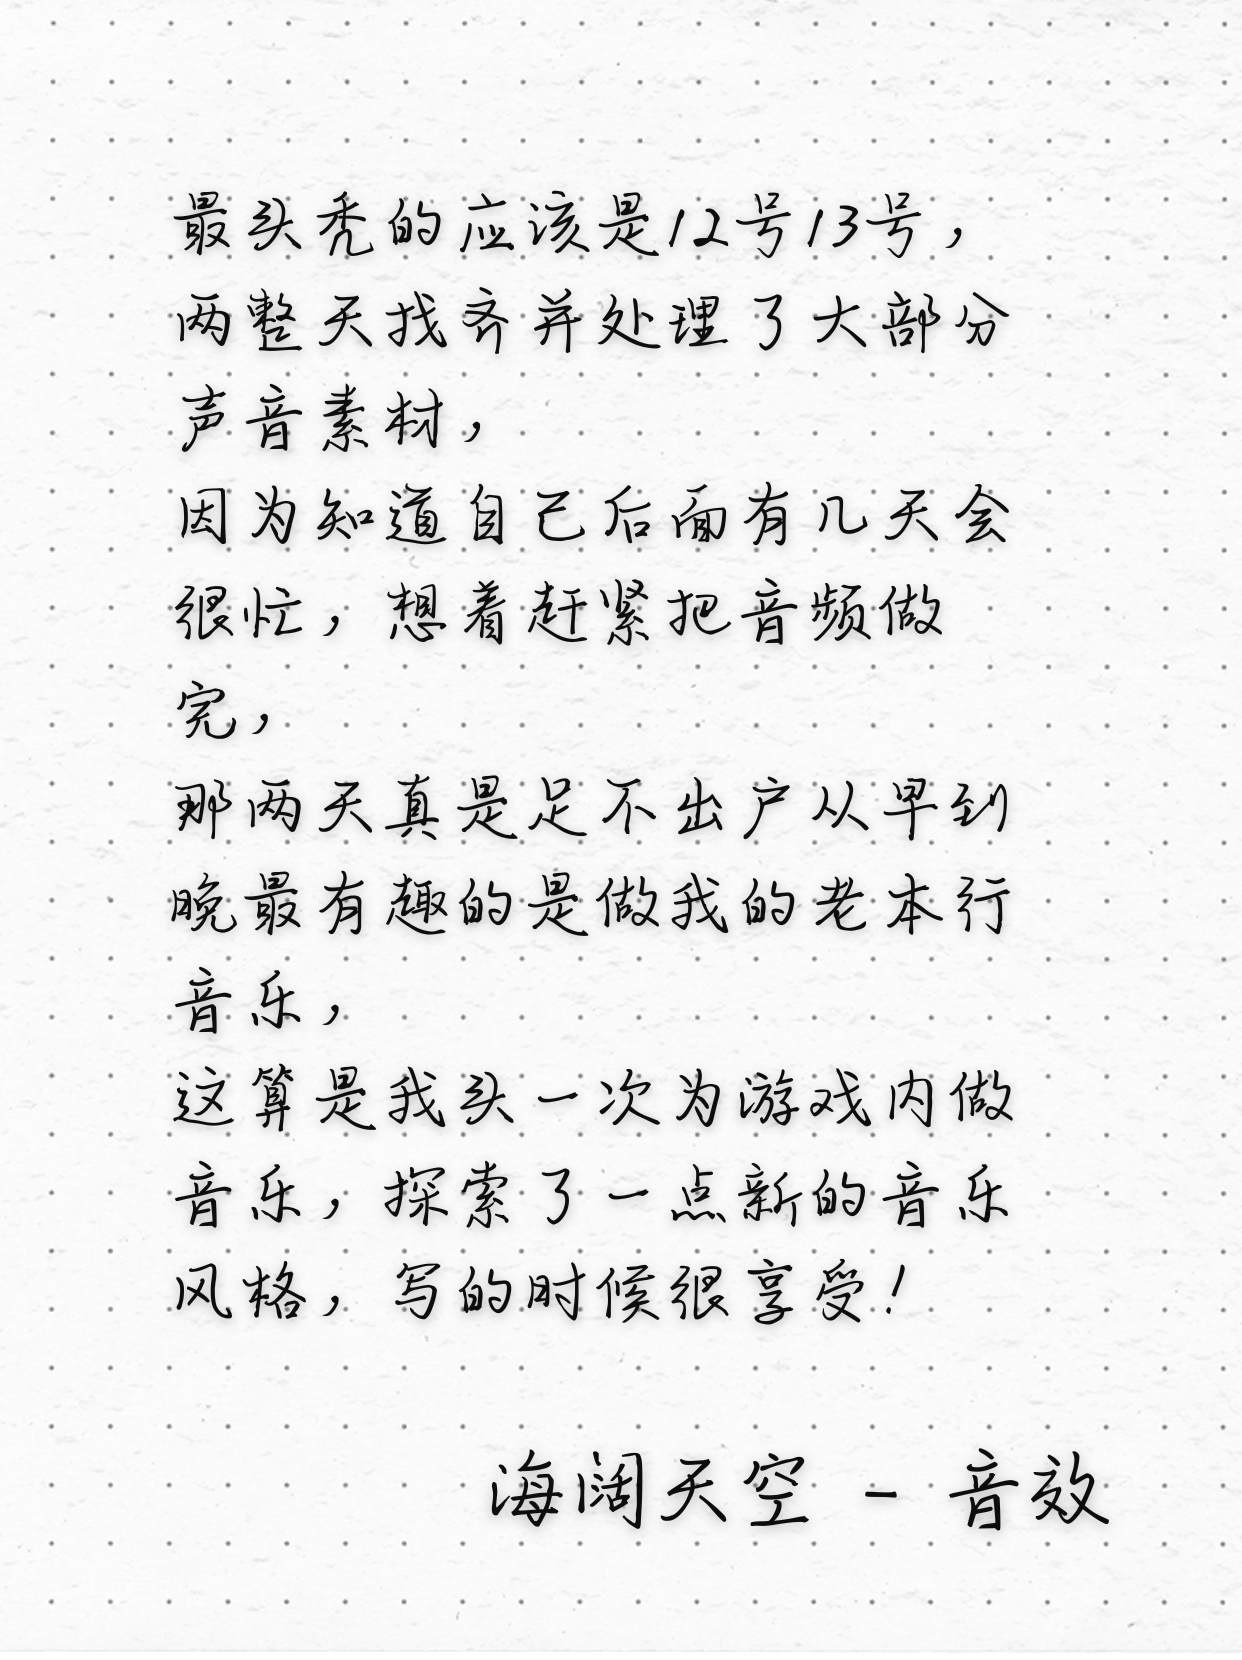 最头秃的应该是12号13号，
两整天找齐并处理了大部分
声音素材，
因为知道自己后面有几天会
很忙，想着赶紧把音频做
完，
那两天真是足不出户从早到
晚最有趣的是做我的老本行
音乐，
这算是我头一次为游戏内做
音乐，探索了一点新的音乐
风格，写的时候很享受！
海阔天空 - 音效